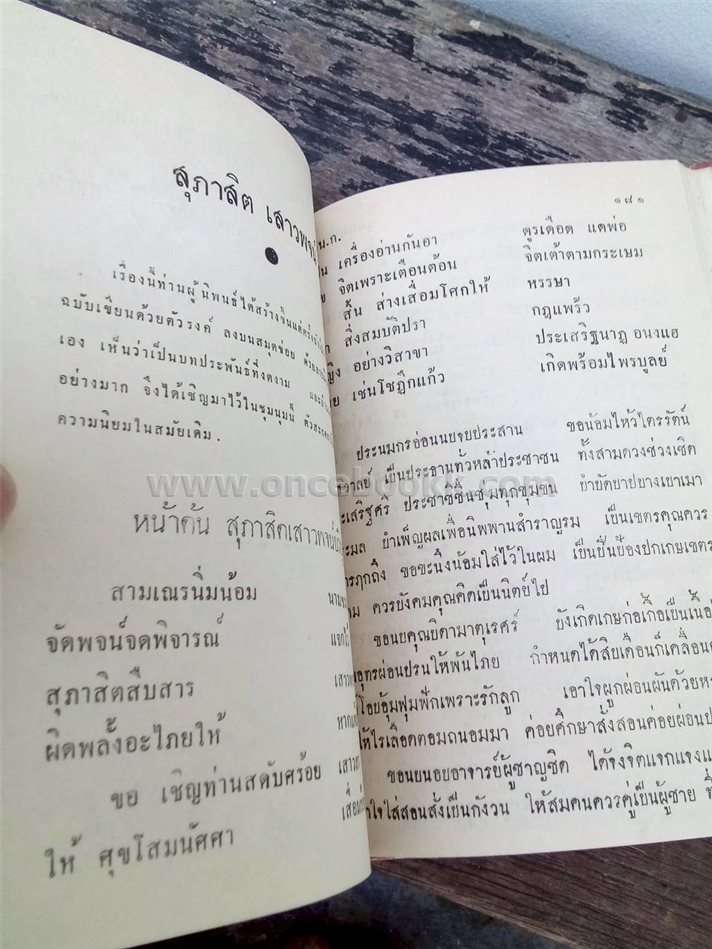 สุภาสิต เสาวพจน์
เรื่องนี้ท่านผู้นิพนธ์ได้สร้างขึ้นแต่ครั้ง
ฉบับเขียนด้วยตัวรงค์ ลงบนสมุดข่อย ด้วย
เอง เห็นว่าเป็นบทประพันธ์ที่งดงาม และ
อย่างมาก จึงได้เชิญมาไว้ในชุมนุมนี้
ความนิยมในสมัยเดิม.
หน้าต้น สุภาสิตเสาวพจน์
สามเณรนิ่มน้อม
จัดพจน์จดพิจารณ์
สุภาสิตสืบสาร
ผิดพลั้งอะไภยให้
ขอ เชิญท่านสดับศร้อย
ให้ ศุขโสมนัศศา
๑๘๑
น.ก.
เครื่องอ่านกันอา ดูรเดือด แดพ่อ
จิตเพราะเตือนต้อน จิตเต้าตามกระเษม
สั้น ส่างเสื่อมโศกให้ หรรษา
สิ่งสมบัติปรา กฎแพร้ว
อย่างวิสาขา ประเสริฐนาฎ อนงแฮ
เช่นโชฎึกแก้ว เกิดพร้อมไพรบูลย์
ประนมกรอ่อนนบจบประสาน ขอน้อมไหว้ไตรรัตน์
เป็นประธานทั่วหล้าประชาชน ทั้งสามดวงช่วงเชิด
ประชาชื่นชุมทุกชุมชน ยำยัดยาปยางเยาเมา
บำเพ็ญผลเพื่อนิพพานสำราญรม เป็นเขตรคุณควร
ขอขะนึ่งน้อมใส่ไว้ในผม เป็นปิ่นป้องปกเกษเขตร
ควรบังคมคุณคิดเป็นนิตย์ไป
ขอนบคุณบิดามาตุเรศร์ บังเกิดเกษก่อเกื้อเป็นเนื้อ
ผ่อนปรนให้พ้นไภย กำหนดได้สิบเดือนก็เคลื่อน
อุ้มฟุมฟักเพราะรักลูก เอาใจผูกผ่อนผันด้วย
ให้ไรเลือดตอมถนอมมา ค่อยศึกษาสั่งสอนค่อยผ่อน
ขอนบนอบอาจารย์ผู้ชาญชิด ได้จงจิตแจกแจง
ใจใส่สอนสั่งเป็นกังวน ให้สมคนควรคู่เป็นผู้ชาย
www.oncebookk.com